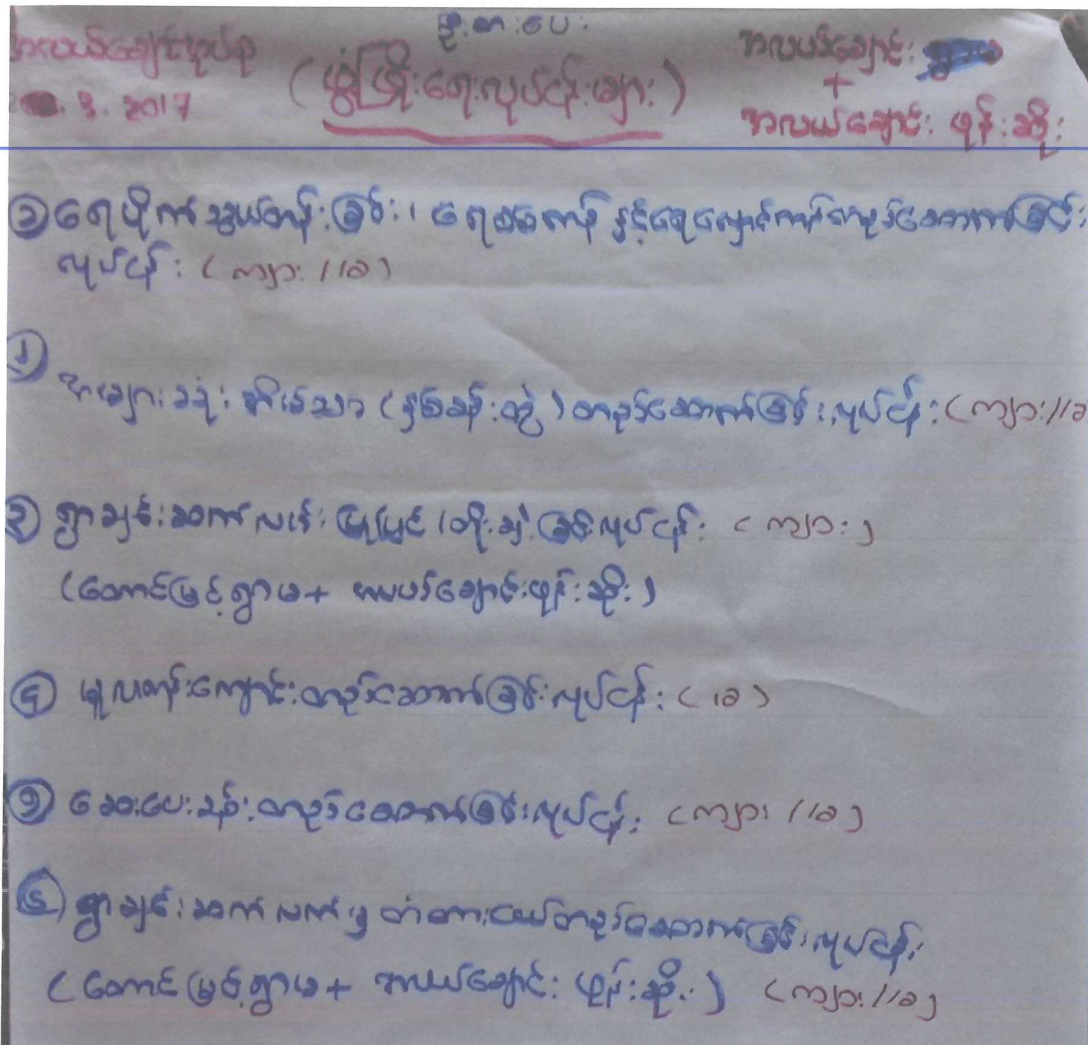 ဦးစားပေး
အလယ်ချောင်းအုပ်စု
. 3. 2017
(ဖွံ့ဖြိုးရေးလုပ်ငန်းများ)
အလယ်ချောင်း
+
အလယ်ချောင်း ဖုန်းဆိုး
၁ ရေပိုက်သွယ်တန်းခြင်း၊ ရေစစ်ကန် နှင့်ရေလှောင်ကန်တည်ဆောက်ခြင်း
လုပ်ငန်း (ကျား / /ခ)
၂
အများသုံး အိမ်သာ (နှစ်ခန်းတွဲ) တည်ဆောက်ခြင်းလုပ်ငန်း (ကျား//ခ
၃ ရွာချင်းဆက်လမ်း ပြုပြင် /တိုးချဲ့ခြင်းလုပ်ငန်း (ကျား)
(တောင်မြင့်ရွာမ+ အလယ်ချောင်းဖုန်းဆိုး)
၄ မူလတန်းကျောင်းတည်ဆောက်ခြင်းလုပ်ငန်း (ခ)
၅ ဆေးပေးခန်းတည်ဆောက်ခြင်းလုပ်ငန်း (ကျား //ခ)
၆ ရွာချင်းဆက်လက်မှု တံတားငယ်တည်ဆောက်ခြင်းလုပ်ငန်း
(တောင်မြင့်ရွာမ+ အလယ်ချောင်း ဖုန်းဆိုး) (ကျား//ခ)